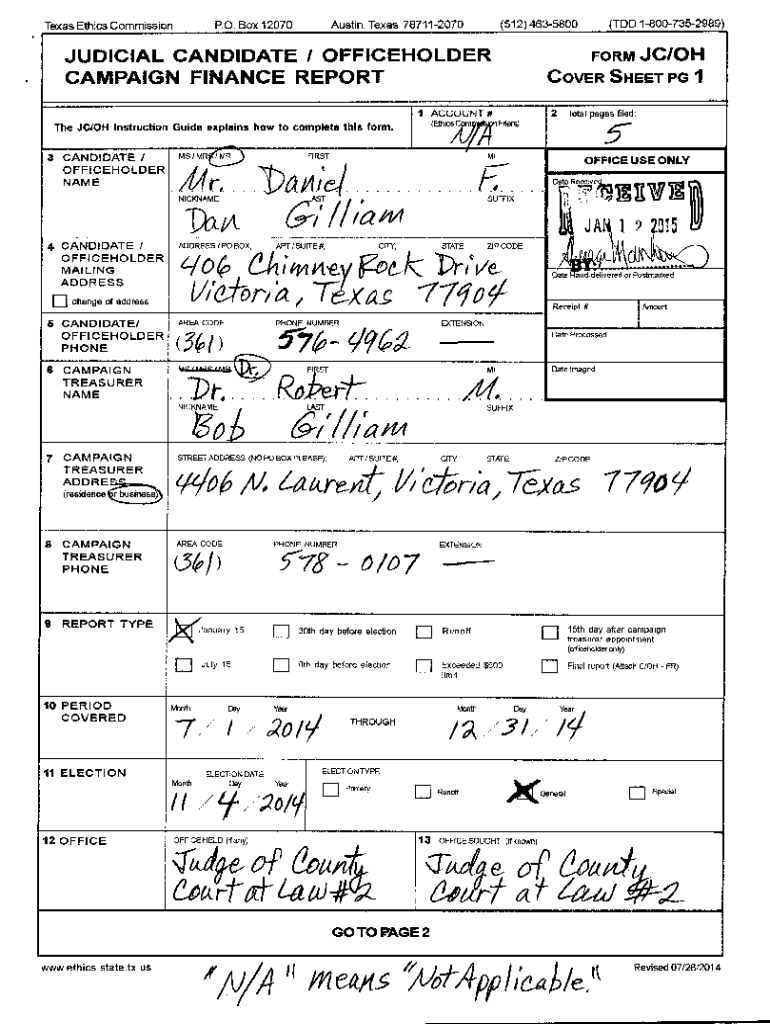 Texas Ethics Commission P.O. Box 12070 Austin, Texas 78711-2070 (512) 463-5800 (TDD 1-800-735-2989)
JUDICIAL CANDIDATE / OFFICEHOLDER
CAMPAIGN FINANCE REPORT
FORM JC/OH
COVER SHEET PG 1
The JC/OH Instruction Guide explains how to complete this form.
1 ACCOUNT #
(Ethics Commission Filers)
N/A
2 Total pages filed:
5
3 CANDIDATE / OFFICEHOLDER NAME
MS / MRS / MR FIRST MI
Mr. Daniel F.
NICKNAME LAST SUFFIX
Dan Gilliam
OFFICE USE ONLY
Date Received
RECEIVED
JAN 12 2015
BY:
Date Hand-delivered or Postmarked
Receipt # Amount
Date Processed
Date Imaged
4 CANDIDATE / OFFICEHOLDER MAILING ADDRESS
change of address
ADDRESS / PO BOX; APT / SUITE #; CITY; STATE ZIP CODE
406 Chimney Rock Drive
Victoria, Texas 77904
5 CANDIDATE/ OFFICEHOLDER PHONE
AREA CODE PHONE NUMBER EXTENSION
(361) 576-4962 —
6 CAMPAIGN TREASURER NAME
MS / MRS / MR Dr. FIRST MI
Dr. Robert M.
NICKNAME LAST SUFFIX
Bob Gilliam
7 CAMPAIGN TREASURER ADDRESS
(residence or business)
STREET ADDRESS (NO PO BOX PLEASE); APT / SUITE #; CITY STATE; ZIP CODE
4406 N. Laurent, Victoria, Texas 77904
8 CAMPAIGN TREASURER PHONE
AREA CODE PHONE NUMBER EXTENSION
(361) 578-0107 —
9 REPORT TYPE
January 15 30th day before election Runoff 15th day after campaign treasurer appointment (officeholder only)
July 15 8th day before election Exceeded $500 limit Final report (Attach C/OH - FR)
10 PERIOD COVERED
Month Day Year Month Day Year
7 / 1 / 2014 THROUGH 12 / 31 / 14
11 ELECTION
ELECTION DATE
Month Day Year
11 / 4 / 2014
ELECTION TYPE
Primary Runoff General Special
12 OFFICE
OFFICE HELD (if any)
Judge of County
Court at Law #2
13 OFFICE SOUGHT (if known)
Judge of County
Court at Law #2
GO TO PAGE 2
www.ethics.state.tx.us
Revised 07/28/2014
"N/A" means "Not Applicable."